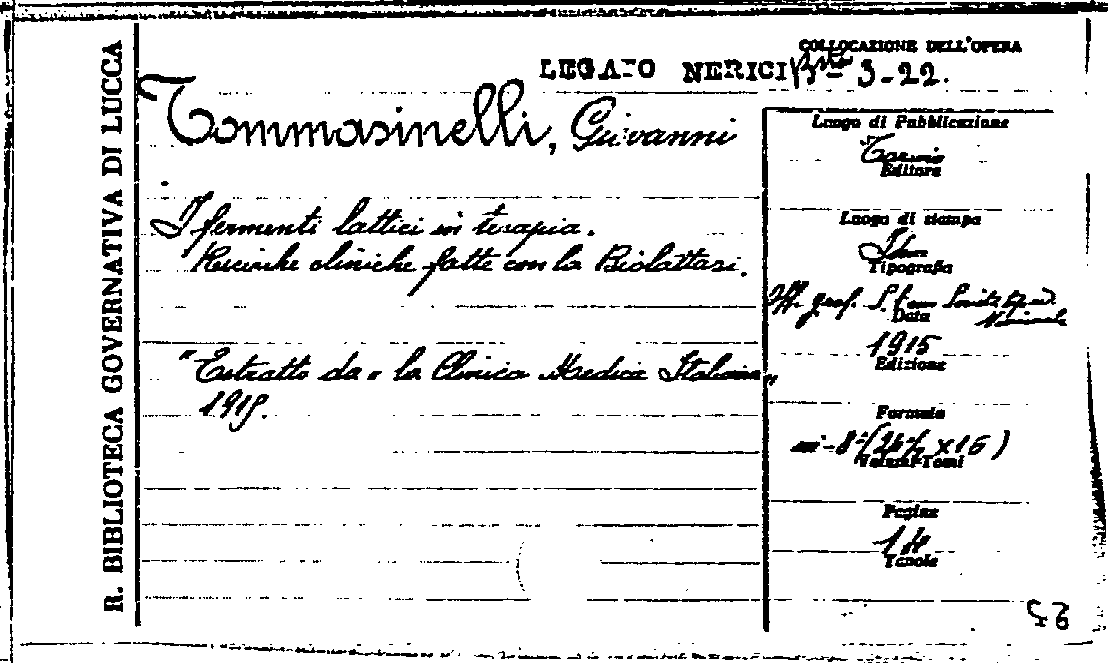 R. BIBLIOTECA GOVERNATIVA DI LUCCA
COLLOCAZIONE DELL'OPERA
LEGATO NERICI 3-22.
Tommasinelli, Giovanni
Luogo di Pubblicazione
Torino
Editore
I fermenti lattici in terapia.
Ricerche cliniche fatte con la Biolattasi.
Luogo di stampa
Tipografia
Off. graf.
Data
1915
Edizione
"Estratto da "la Clinica Medica Italiana"
1915.
Formato
in-8°( x16)
Volumi-Tomi
Pagine
14
Tavole